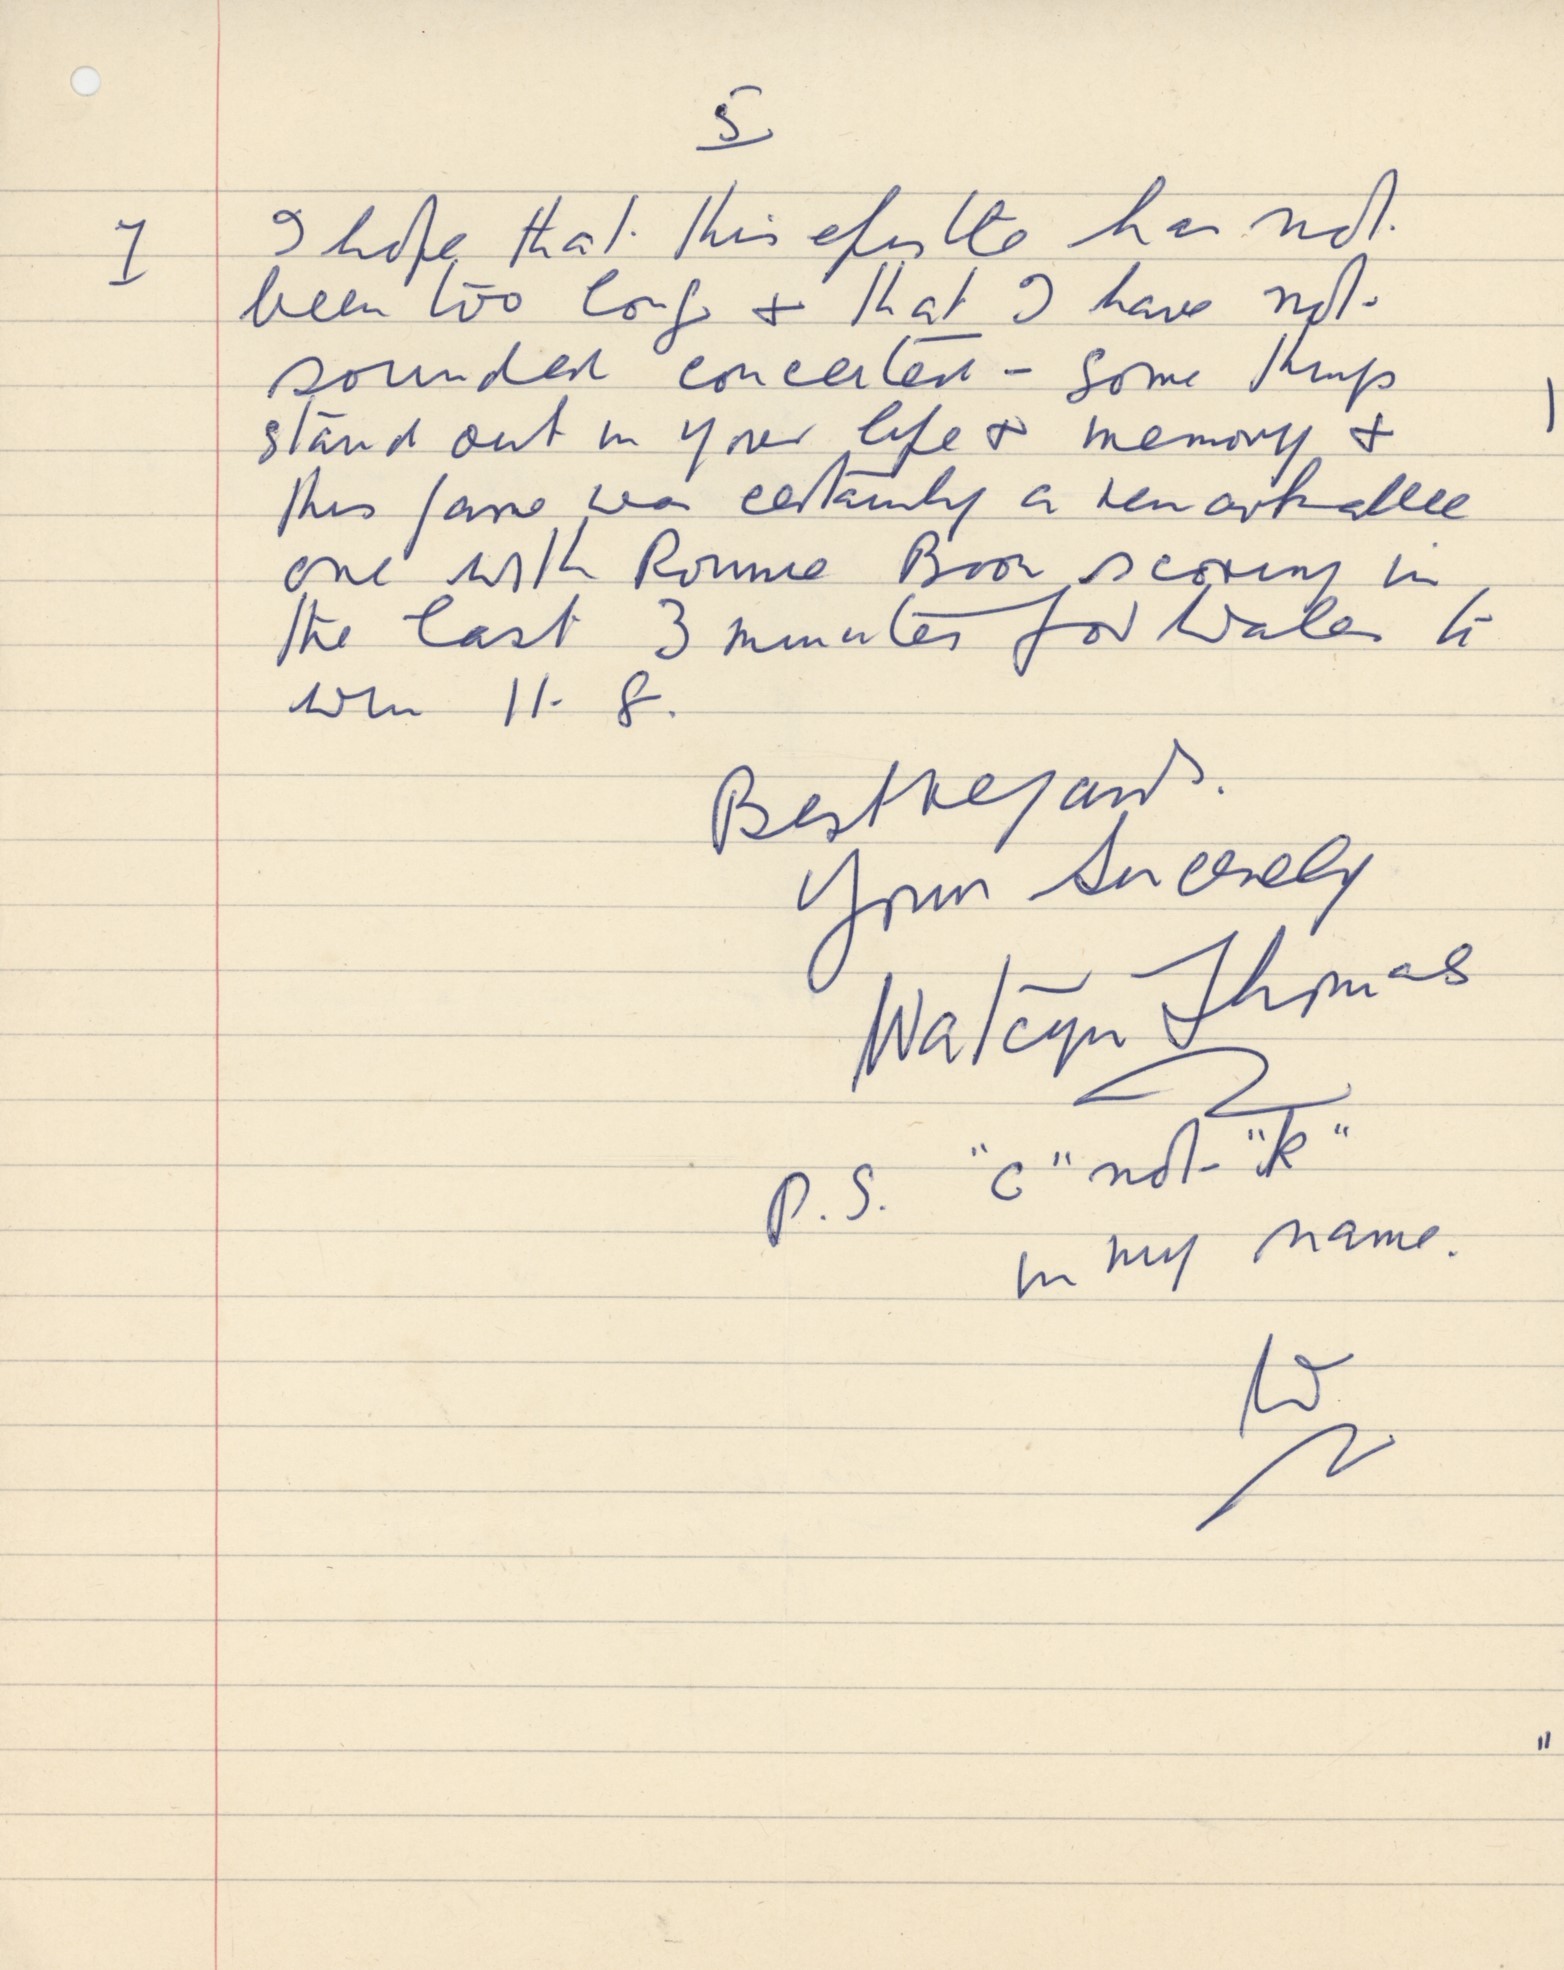 5
7 I hope that this epistle has not
been too long & that I have not
sounded conceited - some things
stand out in your life & memory &
this game was certainly a remarkable
one with Ronnie Boon scoring in
the last 3 minutes for Wales to
win 11-8.
Best regards.
Yours Sincerely
Watcyn Thomas
P.S. "c" not "k"
in my name.
W